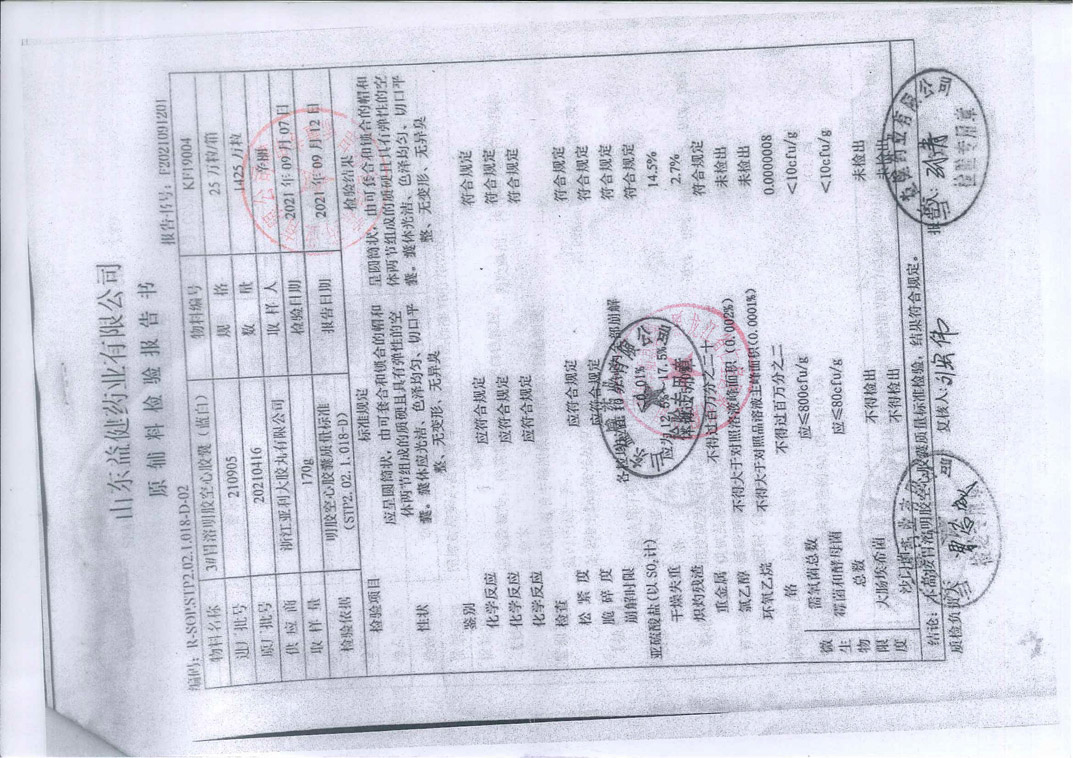 山东益健药业有限公司
原辅料检验报告书
编码：R-SOP.STP2.02.1.018-D-02 报告书号：F2021091201
物料名称 3#胃溶明胶空心胶囊（蓝白） 物料编号 KF19004
进厂批号 210905 规格 25万粒/箱
原厂批号 20210416 数量 1425万粒
供应商 浙江亚利大胶丸有限公司 取样人
取样量 170g 检验日期 2021年09月07日
检验依据 明胶空心胶囊质量标准 报告日期 2021年09月12日
（STP2.02.1.018-D）
检验项目 标准规定 检验结果
性状 应呈圆筒状，由可套合和锁合的帽和 呈圆筒状，由可套合和锁合的帽和
体两节组成的质硬且具有弹性的空 体两节组成的质硬且具有弹性的空
囊。囊体应光洁、色泽均匀、切口平 囊。囊体光洁、色泽均匀、切口平
整、无变形、无异臭 整、无变形、无异臭
鉴别
化学反应 应符合规定 符合规定
化学反应 应符合规定 符合规定
化学反应 应符合规定 符合规定
检查
松紧度 应符合规定 符合规定
脆碎度 应符合规定 符合规定
崩解时限 符合规定
亚硫酸盐（以SO₂计） 0.01% 符合规定
干燥失重 17.5% 14.5%
炽灼残渣 2.7%
重金属 不得过百万分之二十 符合规定
氯乙醇 不得大于对照溶液峰面积（0.002%） 未检出
环氧乙烷 不得大于对照品溶液主峰面积（0.0001%） 未检出
铬 不得过百万分之二 0.0000008
微生物限度
需氧菌总数 应≤800cfu/g <10cfu/g
霉菌和酵母菌总数 应≤80cfu/g <10cfu/g
大肠埃希菌 不得检出 未检出
沙门菌 不得检出 未检出
结论：本品按胃溶明胶空心胶囊质量标准检验，结果符合规定。
质检负责人 复核人： 报告人：
检验专用章
检验专用章